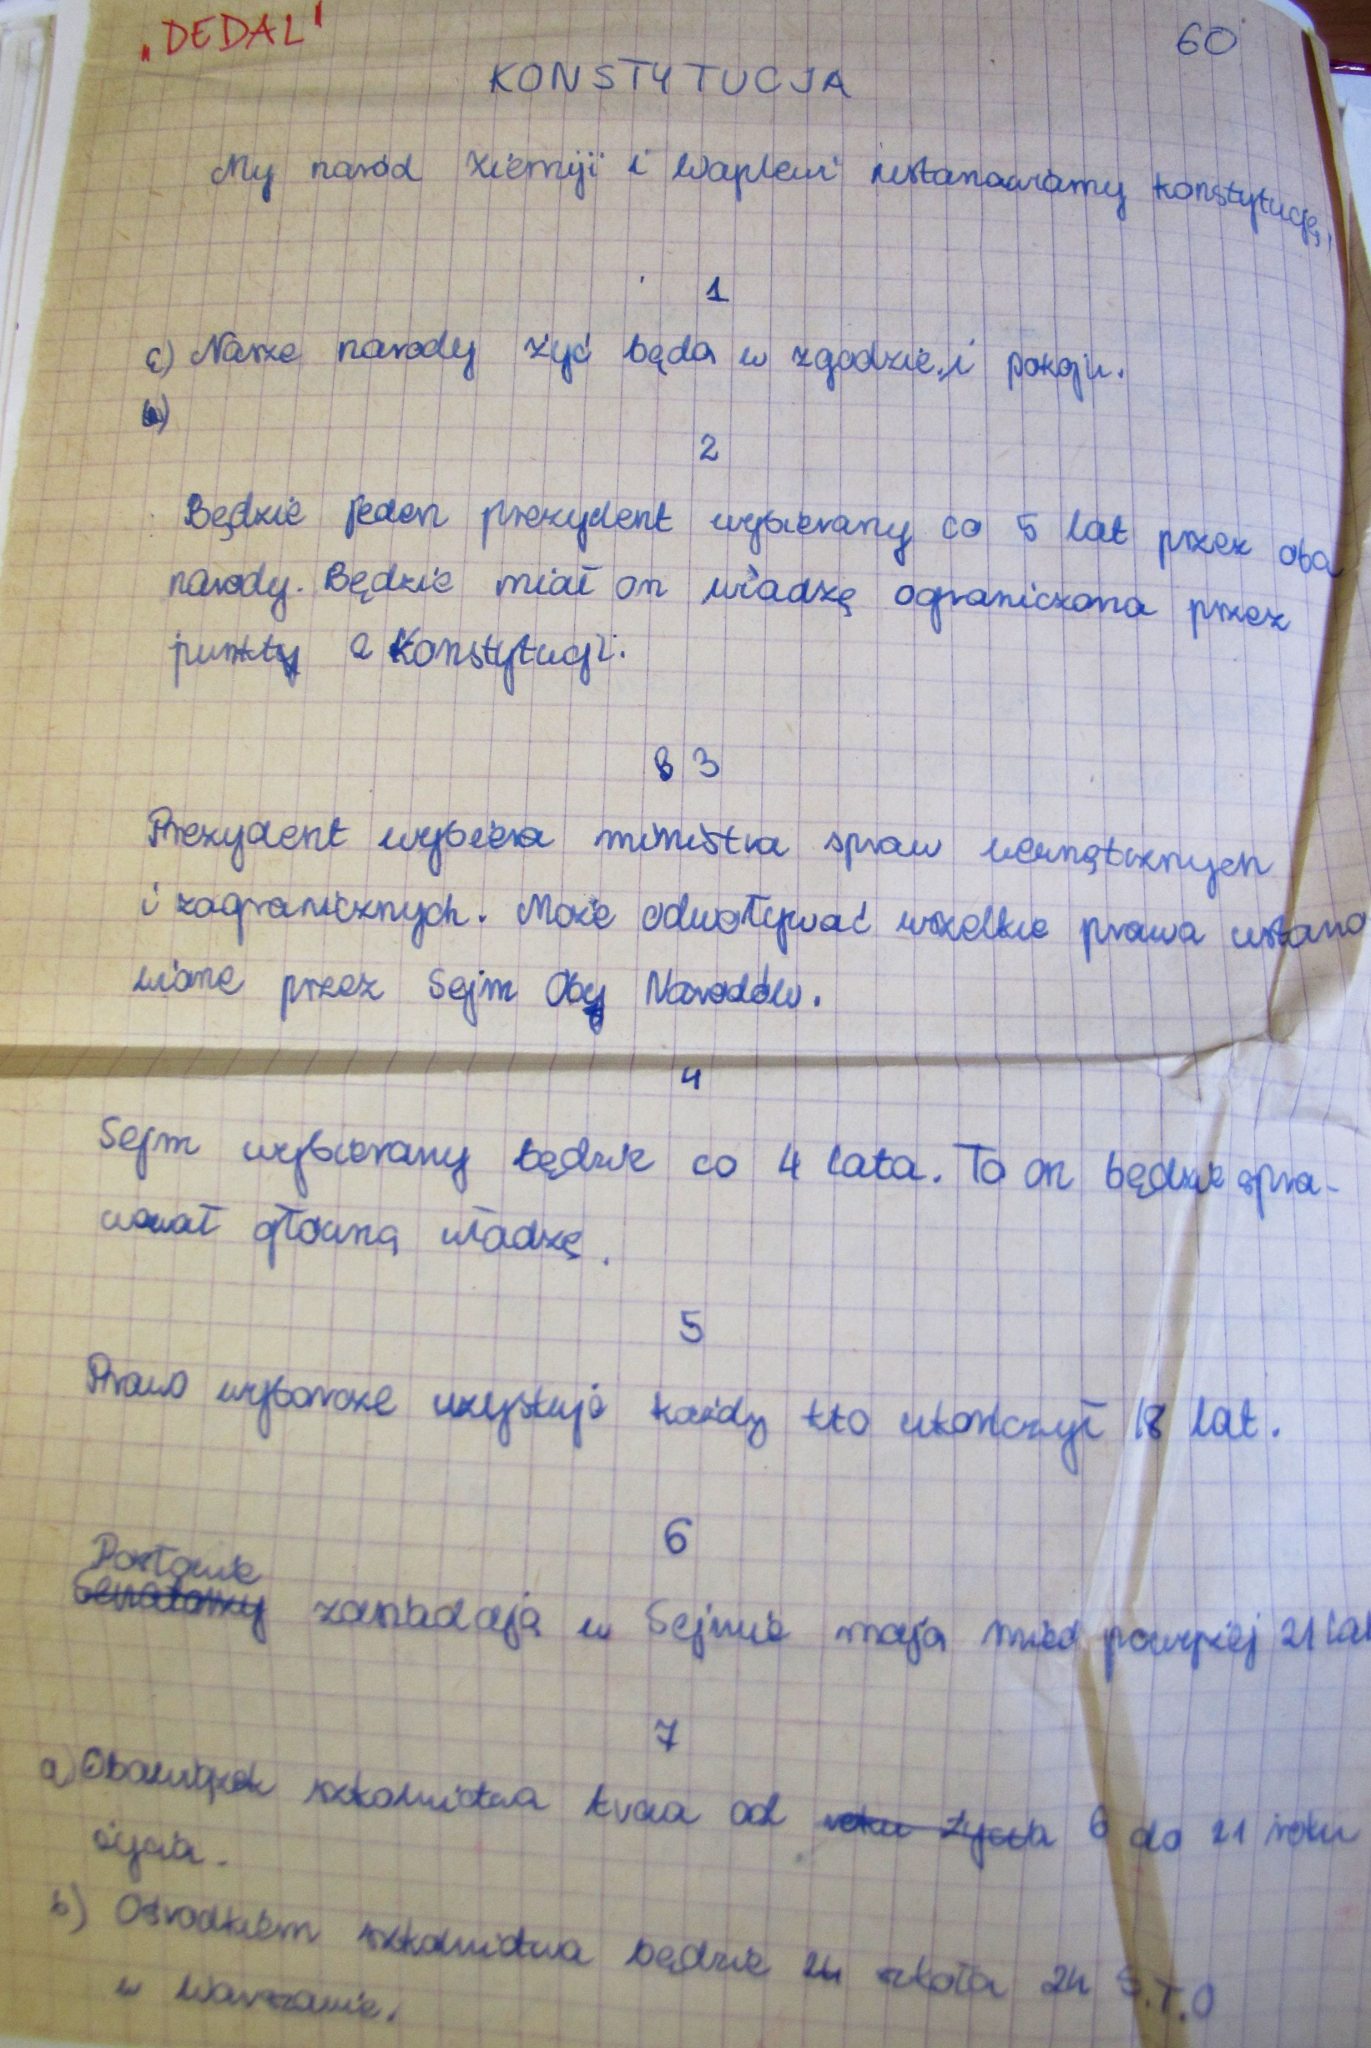 „DEDAL"
60
KONSTYTUCJA
My naród Ziemji i Waplewi ustanawiamy konstytucję,
1
a) Nasze narody żyć będa w zgodzie i pokoju.
2
Będzie jeden prezydent wybierany co 5 lat przez oba
narody. Będzie miał on władzę ograniczona przez
punkty 2 Konstytucji.
3
Prezydent wybiera ministra spraw wewnętrznych
i zagranicznych. Może odwoływać wszelkie prawa ustano
wione przez Sejm Oby Narodów.
4
Sejm wybierany będzie co 4 lata. To on będzie spra-
wował główną władzę.
5
Prawo wyborcze uzystuje każdy kto ukończył 18 lat.
6
Posłowie
Senatorzy zasiadają w Sejmie maja mieć powyżej 21 lat
7
a) Obowiązek szkolnictwa trwa od roku życia 6 do 21 roku
życia.
b) Ośrodkiem szkolnictwa będzie szkoła 24 S.T.O
w Warszawie.